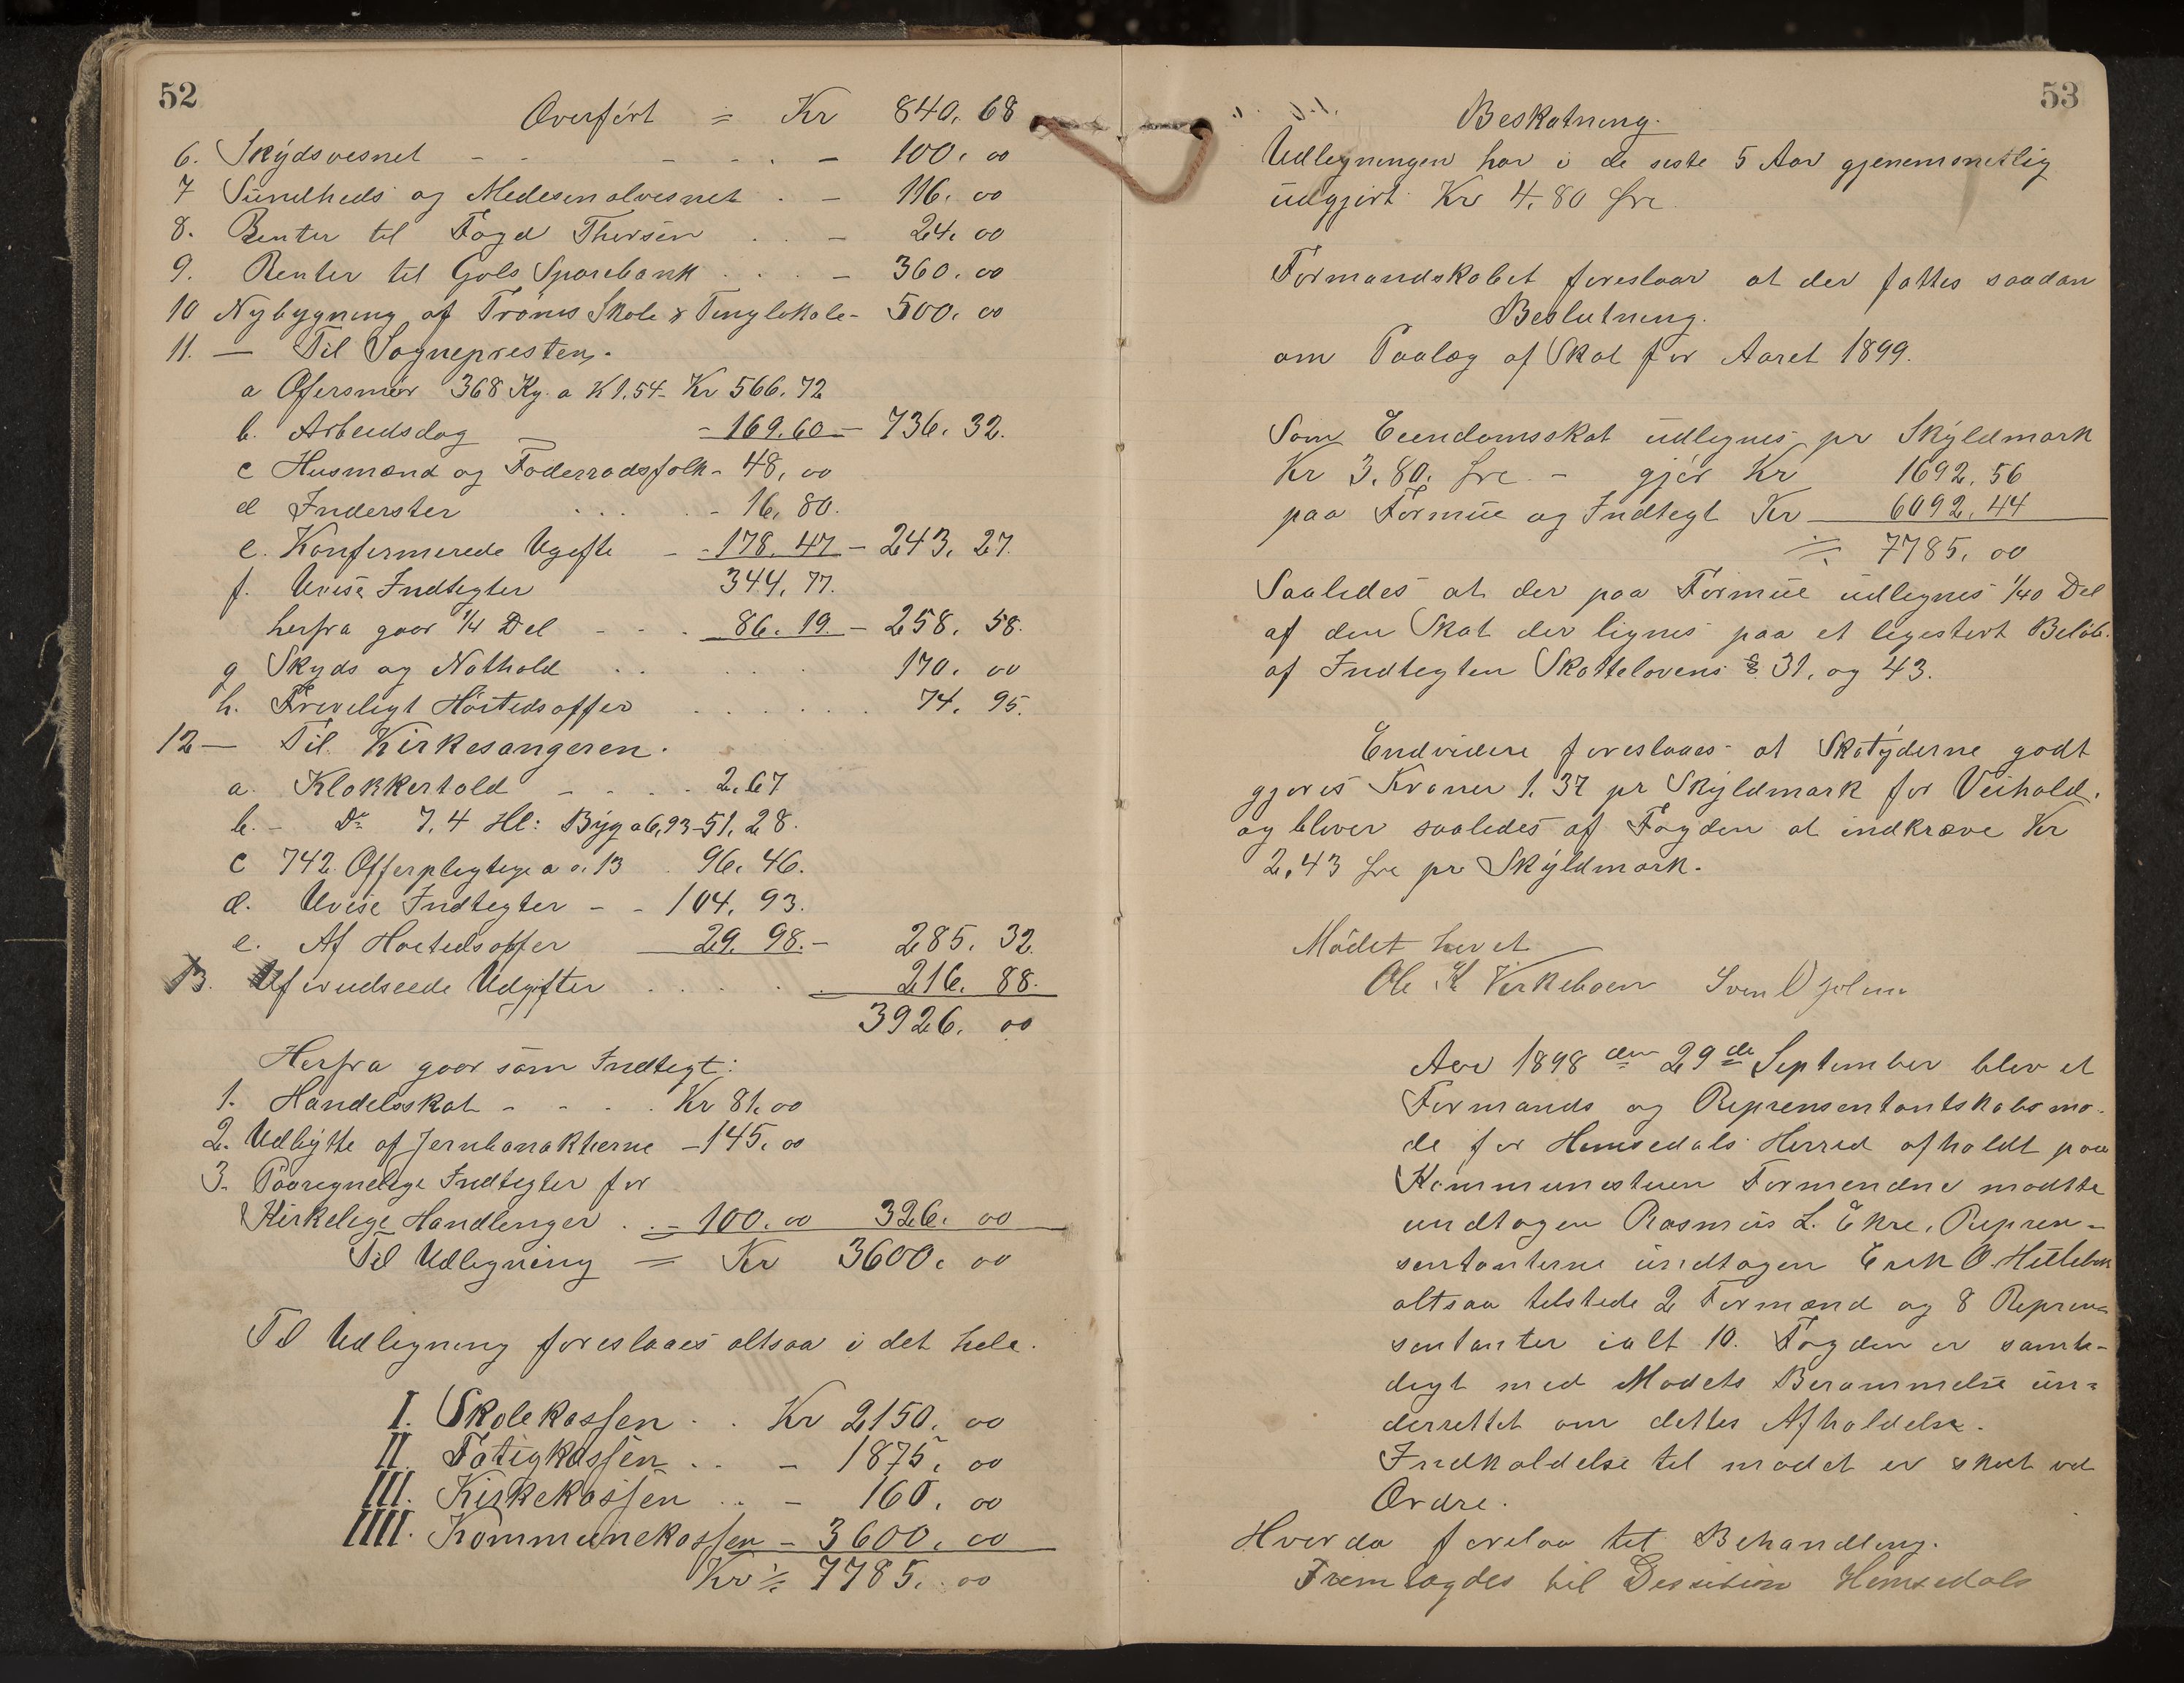 52
Overført = Kr 840,68
6. Skydsvesnet - - - - - - 100,00
7 Sundheds og Medesinalvesnet . - 116,00
8. Renter til Fogd Thersen . . - 24,00
9. Renter til Gols Sparebank . . . - 360,00
10 Nybygning af Trøims Skole & Tinglokale - 500,00
11. — Til Sognepresten.
a Ofersmør 368 Kg. a K 1.54 - Kr 566.72
b. Arbeidsdag - 169.60 - 736.32.
c Husmænd og Føderaadsfolk - 48,00
d Inderster . . . . - 16,80.
e. Konfermerede Ugifte - - 178.47 - 243,27.
f. Uvise Indtegter 344,77.
herfra gaar 1/4 Del - - - 86.19. - 258,58.
g Skyds og Nathold . . . 170,00
h. Freveligt Høitedsoffer . . . . . . 74,95.
12 — Til Kirkesangeren.
a. Klokkertold - - - - 2.67
b. - Do 7,4 Hl: Byg a 6,93 - 51,28.
c 742 Offerplegtige a 0.13 . 96,46.
d. Uvise Indtegter - - 104,93.
e. Af Høitedsoffer 29.98. - 285,32.
13. Uforudseede Udgifter . . . . . 216,88.
3926,00
Herfra gaar som Indtegt:
1. Handelsskat - - - . Kr 81,00
2. Udbytte af Jernbanaktierne - 145,00
3. Paaregnelige Indtegter for
Kirkelige Handlenger . . - 100,00 326,00
Til Udligning = Kr 3600,00
Til Udligning foreslaaes altsaa i det hele.
I. Skolekassen . . Kr 2150,00
II. Fatigkassen . . - 1875,00
III. Kirkekassen . . - 160,00
IIII. Kommunekassen - 3600,00
Kr = 7785,00
53
Beskatning.
Udligningen har i de siste 5 Aar gjenemsnetlig
udgjørt Kr 4.80 Øre.
Formandskabet foreslaar at der fattes saadan
Beslutning.
om Paalæg af Skat for Aaret 1899.
Som Eiendomsskat udlignes pr Skyldmark
Kr 3.80. Øre - gjør Kr 1692,56
paa Formue og Indtegt Kr 6092,44
= 7785,00
Saaledes at der paa Formue udlignes 1/40 Del
af den Skat der lignes paa et ligestort Beløb.
af Indtegten Skattelovens § 31, og 43.
Endvidere foreslaaes at Skatyderne godt
gjøres Kroner 1.37 pr Skyldmark for Veihold.
og bliver saaledes af Fogden at indkræve Kr
2.43 Øre pr Skyldmark.
Mødet hevet
Ole K Kirkeboen Sven
Aar 1898 den 29de September blev et
Formands og Reprensentantskabsmø-
de for Hemsedals Herred afholdt paa
Kommunestuen Formendne mødtte
undtagen Rasmus L. Ekre, Repren-
sentanterne undtagen Erik O.
altsaa telstede 2 Formænd og 8 Repren-
sentanter ialt 10. Fogden er samti-
digt med Mødets Berammelse un-
derrettet om dettes Afholdelse.
Indkaldelse til mødet er skeet ved
Ordre.
Hvor da forelaa til Behandling.
Fremlagdes til Desision Hemsedals